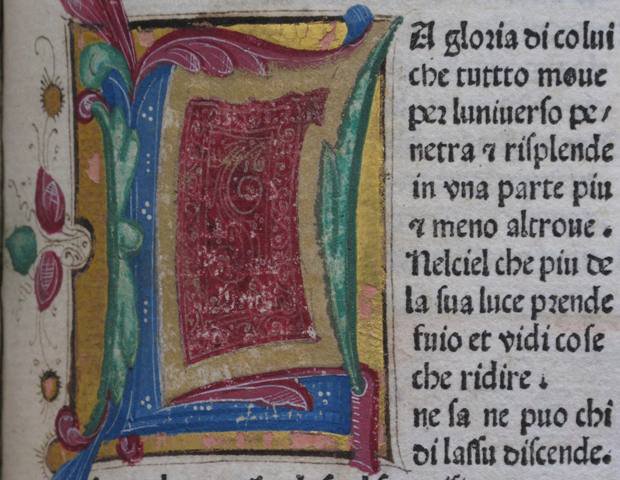 A gloria di colui
che tuttto moue
per luniuerso pe/
netra ⁊ risplende
in vna parte piu
⁊ meno altroue .
Nelciel che piu de
la sua luce prende
fuio et vidi cose
che ridire .
ne sa ne puo chi
di lassu discende.